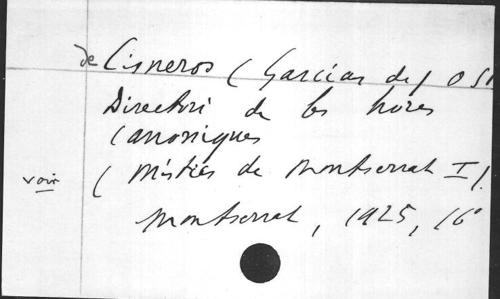 de Cisneros (Garcias de) OSB
Directori de les hores
canoniques
voir (Místics de Montserrat I).
Montserrat, 1925, 16°